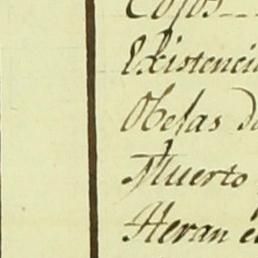 Cojos
Existencia
Obejas d
Muerto
Heran e